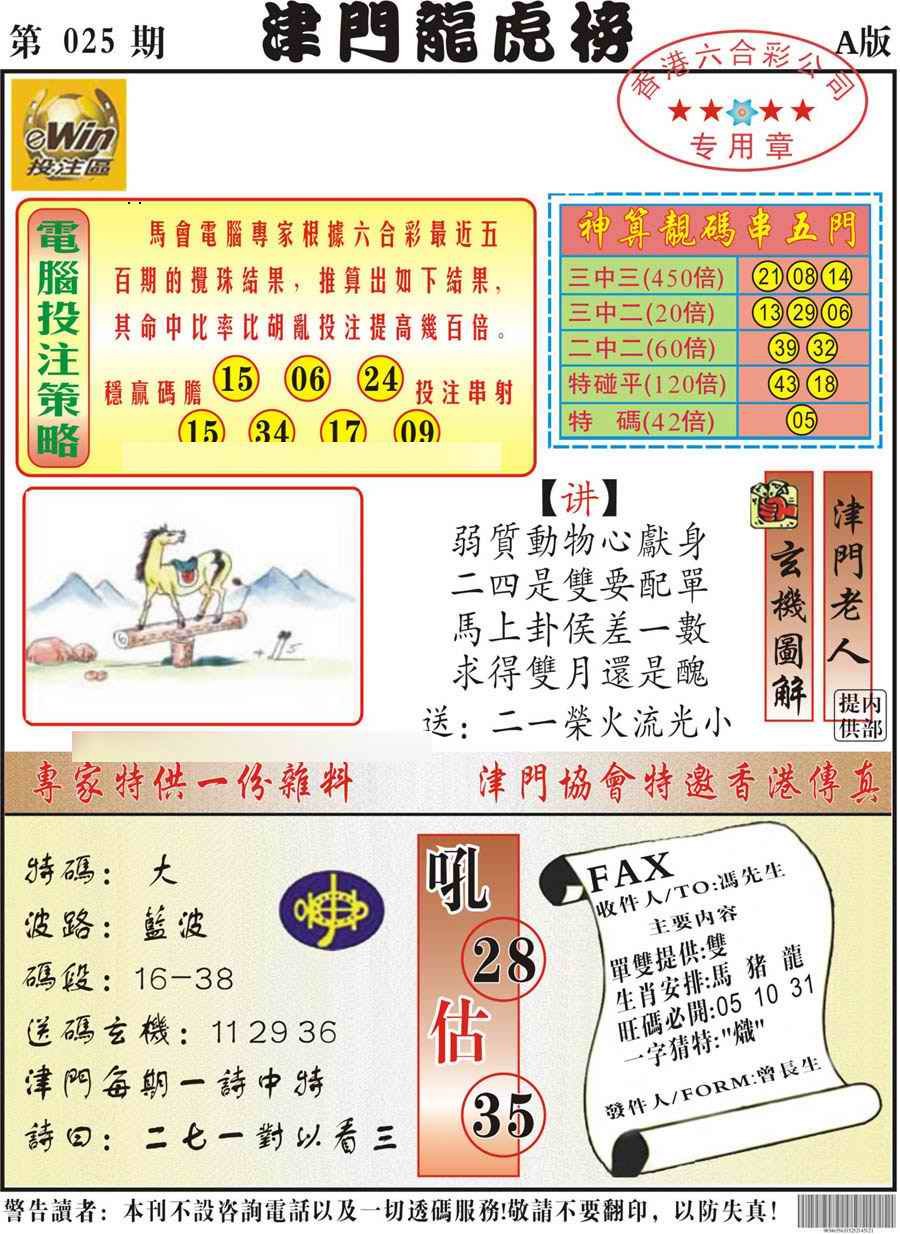 第 025 期
津門龍虎榜
A版
香港六合彩公司
专用章
eWin
投注區
電腦投注策略
馬會電腦專家根據六合彩最近五
百期的攪珠結果，推算出如下結果，
其命中比率比胡亂投注提高幾百倍。
穩贏碼膽 15 06 24 投注串射
15 34 17 09
神算靚碼串五門
三中三(450倍) 21 08 14
三中二(20倍) 13 29 06
二中二(60倍) 39 32
特碰平(120倍) 43 18
特 碼(42倍) 05
【讲】
弱質動物心獻身
二四是雙要配單
馬上卦侯差一數
求得雙月還是醜
送：二一榮火流光小
玄機圖解
津門老人
内部提供
專家特供一份雜料
津門協會特邀香港傳真
特碼：大
波路：藍波
碼段：16-38
送碼玄機：11 29 36
津門每期一詩中特
詩曰：二七一對以看三
吼
28
估
35
FAX
收件人/TO:馮先生
主要内容
單雙提供:雙
生肖安排:馬 猪 龍
旺碼必開:05 10 31
一字猜特:"熾"
發件人/FORM:曾長生
警告讀者：本刊不設咨詢電話以及一切透碼服務!敬請不要翻印，以防失真！